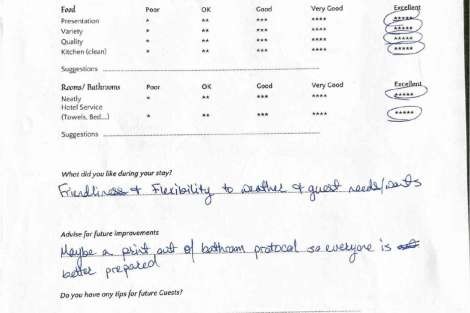 Food Poor OK Good Very Good Excellent
Presentation * ** *** **** *****
Variety * ** *** **** *****
Quality * ** *** **** *****
Kitchen (clean) * ** *** **** *****
Suggestions
Rooms/ Bathrooms Poor OK Good Very Good Excellent
Neatly * ** *** **** *****
Hotel Service
(Towels, Bed...) * ** *** **** *****
Suggestions
What did you like during your stay?
Friendliness & Flexibility to weather & guest needs/wants
Advise for future improvements
Maybe a print out of bathroom protocal so everyone is
better prepared
Do you have any tips for future Guests?